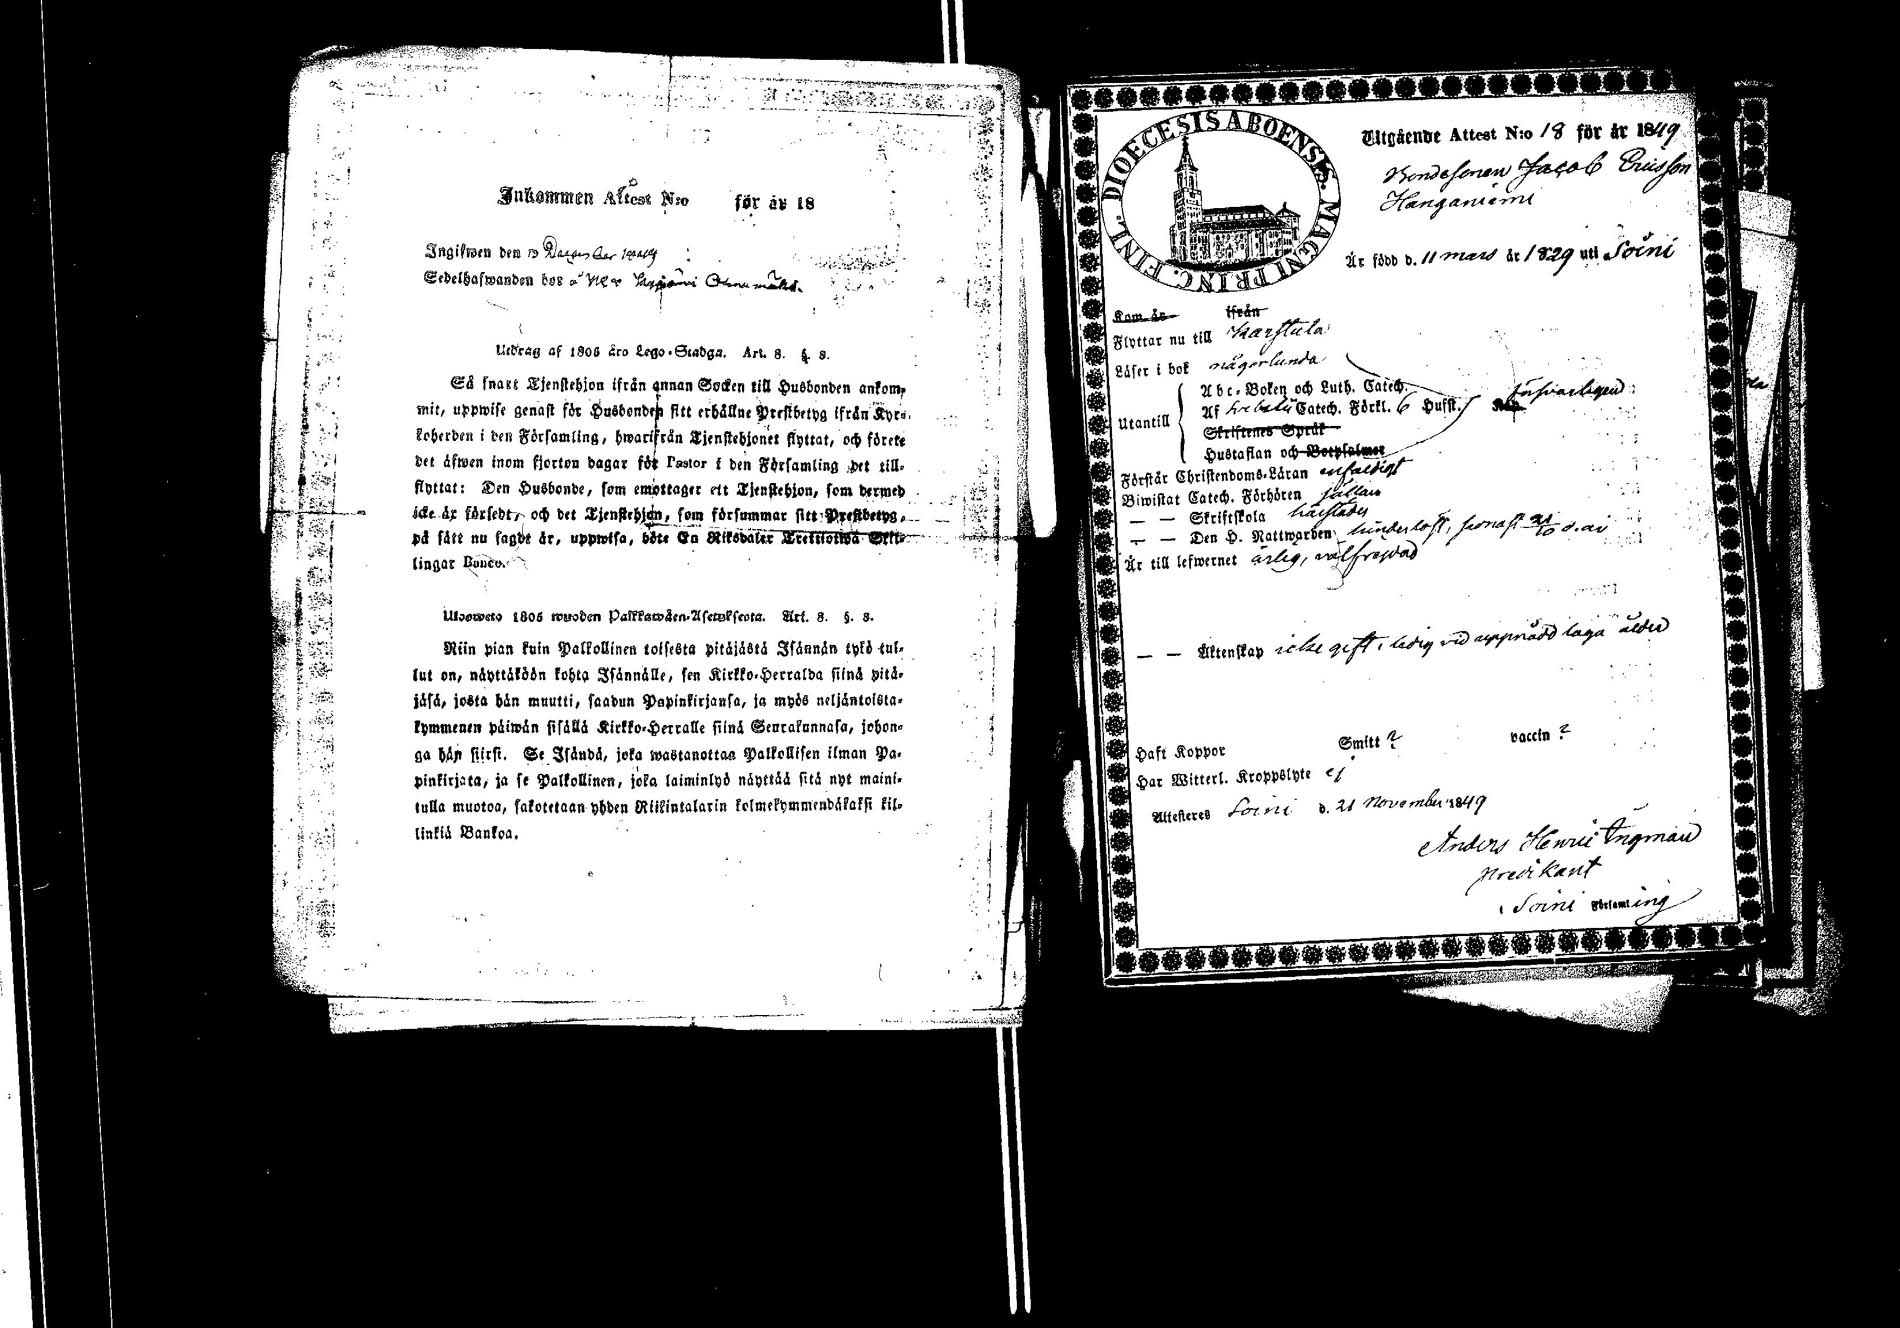 Inkommen Attest N:o för år 18
Ingifwen den 13 December 1849
Sedelhafwanden bor å
Utdrag af 1805 års Lego-Stadga. Art. 8. §. 8.
Så snart Tjenstehjon ifrån annan Socken till Husbonden ankom-
mit, uppwise genast för Husbonden sitt erhållne Prestbetyg ifrån Kyr-
koherden i den Församling, hwarifrån Tjenstehjonet flyttat, och förete
det äfwen inom fjorton dagar för Pastor i den Församling det till-
flyttat: Den Husbonde, som emottager ett Tjenstehjon, som dermed
icke är försedt, och det Tjenstehjon, som försummar sitt Prestbetyg,
på sätt nu sagdt är, uppwisa, böte En Riksdaler Trettiotwå Skil-
lingar Banco.
Ulosweto 1805 wuoden Palkkawäen-Asetuksesta. Art. 8. §. 8.
Niin pian kuin Palkollinen toisesta pitäjästä Isännän tykö tul-
lut on, näyttäköön kohta Isännälle, sen Kirkko-Herralda siinä pitä-
jäsä, josta hän muutti, saadun Papinkirjansa, ja myös neljäntoista-
kymmenen päiwän sisällä Kirkko-Herralle siinä Seurakunnasa, johon-
ga hän siirsi. Se Isändä, joka wastanottaa Palkollisen ilman Pa-
pinkirjata, ja se Palkollinen, joka laiminlyö näyttää sitä nyt maini-
tulla muotoa, sakotetaan yhden Riikintalarin kolmekymmendäkaksi kil-
linkiä Bankoa.
DIOECESIS ABOENSIS. MAGNI PRINC. FINL.
Utgående Attest N:o 18 för år 1849
Bondesonen Jacob Ericsson
Hanganiemi
Är född d. 11 mars år 1829 uti Soini
Kom år ifrån
Flyttar nu till Karstula
Läser i bok någorlunda
Utantill
Abc-Boken och Luth. Catech.
Af Svebelii Catech. Förkl. 6 Hufst. försvarligen
Skriftenes Språk
Hustaflan och Botpsalmer
Förstår Christendoms-Läran enfaldigt
Biwistat Catech. Förhören sällan
— — Skriftskola
— — Den H. Nattwarden hinderlöst, senast 21/10 d. år
Är till lefwernet ärlig, välfrejdad
— — Äktenskap icke gift, ledig vid uppnådd laga ålder
Haft Koppor Smitt ? vaccin ?
Har Witterl. Kroppslyte ej
Attesteres Soini d. 21 November 1849
Anders Henric Ingman
predikant
i Soini Församling